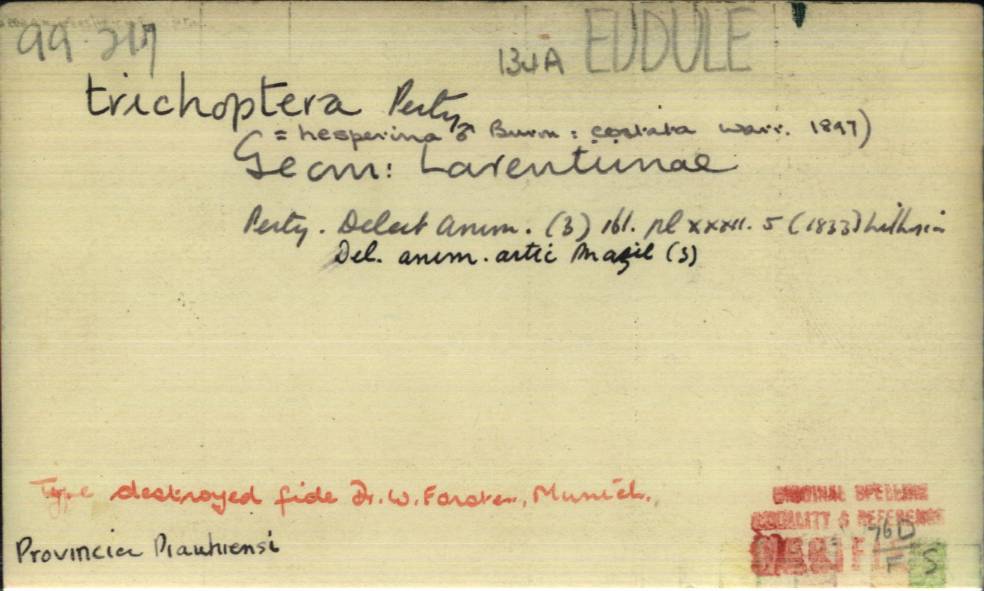 99·217
134A EUDULE
trichoptera Perty
(= hesperina ♂ Burm : costata warr. 1897)
Geom: Larentiinae
Perty. Delect Anim. (3) 161. pl xxxii. 5 (1833) Lithosia
Del. anim. artic Brazil (3)
Type destroyed fide Dr. W. Forster, Munich.
Provincia Piauhiensi
ORIGINAL SPELLING
LOCALITY & REFERENCE
VERIFIED
76D
F S